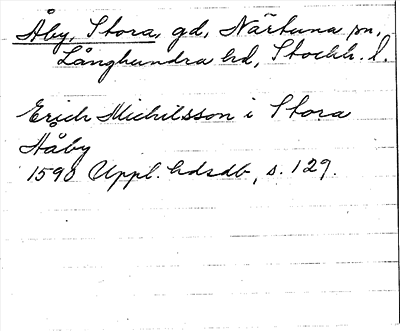 Åby, Stora, gd, Närtuna sn,
Långhundra hd, Stockh. l.
Erich Michilsson i Stora
Håby
1590 Uppl. hdsdb, s. 129.